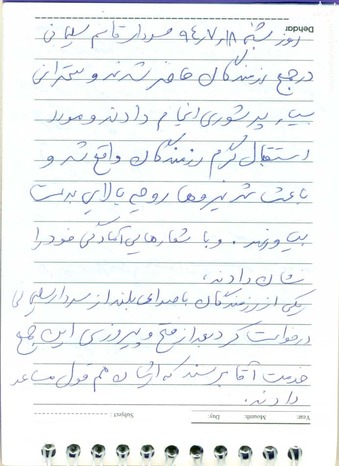 Dehdar
روز شنبه ۹۴/۷/۱۸ سردار قاسم سلیمانی
در جمع رزمندگان حاضر شدند و سخرانی
بسیار پر شوری انجام دادند و مورد
استقبال گرم رزمندگان واقع شد و
باعث شد نیروها روحیه بالایی بدست
بیاورند. و با شعارهایی آمادگی خود را
نشان دادند.
یکی از رزمندگان با صدای بلند از سردار سلیمانی
درخواست کرد بعد از فتح و پیروزی این جمع
خدمت آقا برسند که ایشان هم قول مساعد
دادند.
Year: Mounth: Day: Subject: